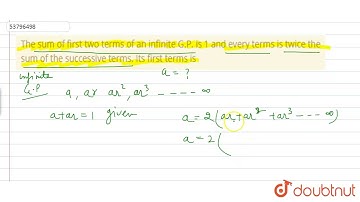 53796498
The sum of first two terms of an infinite G.P. is 1 and every terms is twice the
sum of the successive terms. Its first terms is
a = ?
infinite
G.P a, ar ar², ar³ ----- ∞
a+ar = 1 given a = 2(ar+ar²+ar³ ---- ∞)
a = 2(
doubtnut